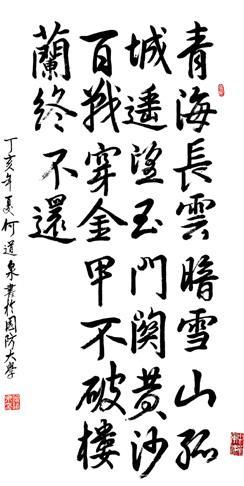 青海長雲暗雪山孤
城遥望玉門関黄沙
百战穿金甲不破楼
蘭終不還
丁亥年夏何道泉書於国防大學